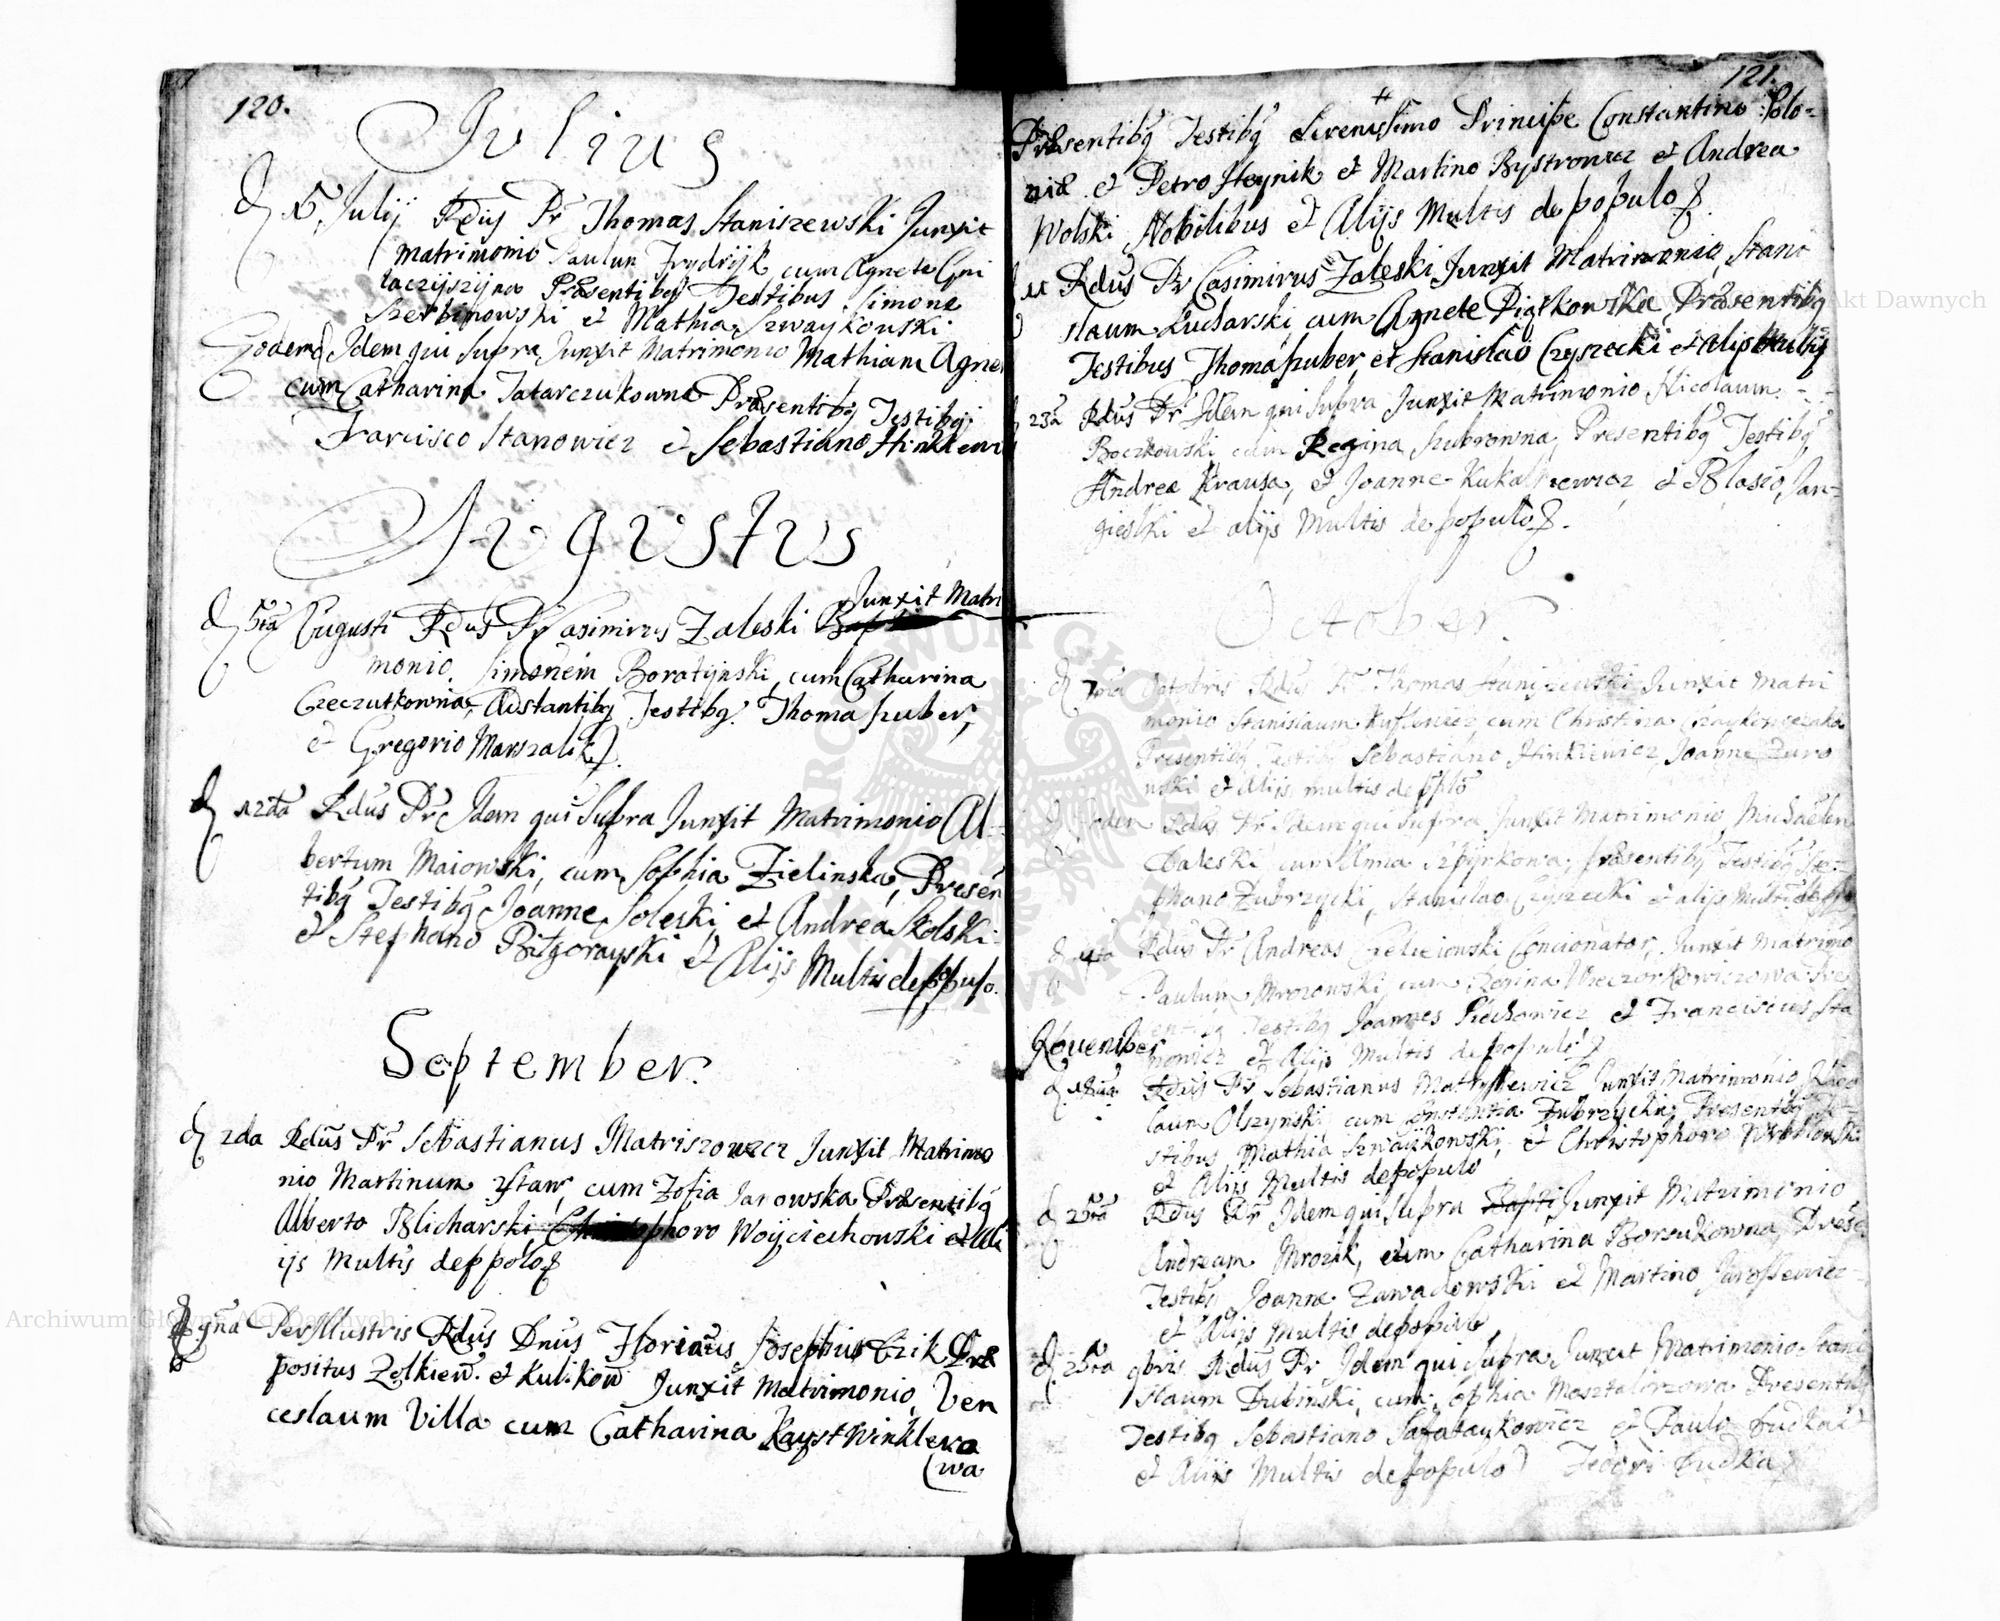 120.
Julius
d 15 Julij Rdus Pr Thomas Staniszewski Junxit
Matrimonio Paulum Frydryk cum Agnete Gni
laczyszyna Præsentibq Testibus Simone
Szerbinowski et Mathia Szwaykowski
Eodem d Idem qui supra Junxit Matrimonio Mathiam Agne
cum Catharina Tatarczukowna Præsentibq Testibq
Francisco Stanowicz et Sebastiano Hinkiewi
Augustus
d 5ta Augusti Rdus Pr Casimirus Zaleski Junxit Matri
monio Simonem Boratynski cum Catharina
Czeczutkowna, Adstantibq Testibq Thoma Huber,
et Gregorio Marszalik
d 12da Rdus Pr Idem qui Supra Junxit Matrimonio Al-
bertum Maiowski, cum Sophia Zielinska, Presen
tibq Testibq Joanne Soleski, et Andrea Skolski
et Stephano Bilgorayski et Alijs Multis de ppulo.
September.
d 2da Rdus Pr Sebastianus Matriszowicz Junxit Matrimo
nio Martinum cum Zofia Jarowska Præsentibq
Alberto Blicharski, Woyciechowski et Ali
ijs Multis de ppolo
d 9na PerIllustris Rdus Dnus Florianus Josephus Præ
positus Zolkiew. et Kulikow Junxit Matrimonio, Ven
ceslaum Villa cum Catharina KaystWinklero
wa
121.
Præsentibq Testibq Serenissimo Principe Constantino Polo-
niæ et Petro Heynik et Martino Bystrowicz et Andrea
Wolski Nobilibus et Alijs Multis de populo
11 Rdus Pr Casimirus Zaleski Junxit Matrimonio, Stani
slaum Kucharski, cum Agnete Piątkowska, Præsentibq
Testibus Thoma Huber et Stanislao Czyszecki et Alijs Multis
23a Rdus Pr Idem qui Supra Junxit Matrimonio Nicolaum
Boczkowski cum Regina Szubrowna, Presentibq Testibq
Andrea Krausa, et Joanne et Blasio Jan-
gielski et alijs Multis de populo
October.
d 7ma Octobris Rdus Pr Thomas Staniszewski Junxit Matri
monio Stanislaum cum Christina
Presentibq Testibq Sebastiano Hinkiewicz, Joanne Zuro
wski et Alijs multis de pplo
d Eodem Rdus Pr Idem qui Supra Junxit Matrimonio, Michaelem
Daleski cum Anna Szpyrkowa, præsentibq Testibq Ste-
phano Zubrzycki, Stanislao Czyszecki et alijs Multis de pplo
d Rdus Pr Andreas Concionator, Junxit Matrimo
Paulum Mrozowski, cum Wieczorkowiczowa Pre
sentibq Testibq Joannes Piechowicz et Franciscus Sta
nowicz et Alijs Multis de populo
November
d 18va Rdus Pr Sebastianus Matryszewicz Junxit Matrimonio Nico
laum Olszynski, cum Constantia Zubrzycka, Presentibq Te-
stibus Mathia Szwaykowski, et Christophoro Wroblewski
et Alijs Multis de populo
d 25ta Rdus Pr Idem qui Supra Bapti Junxit Matrimonio
Andream Mrozik, cum Catharina Borsukowna, Prese
Testibq Joanne Zawadowski et Martino Jaroszewicz
et Alijs Multis de populo
d 25ta 9bris Rdus Pr Idem qui Supra Junxit Matrimonio Stani
slaum Dubinski, cum Sophia Masztalirzowa Presentibq
Testibq Sebastiano Safataykowicz et Paulo Dudka
et Alijs Multis de populo Fedori Dudka